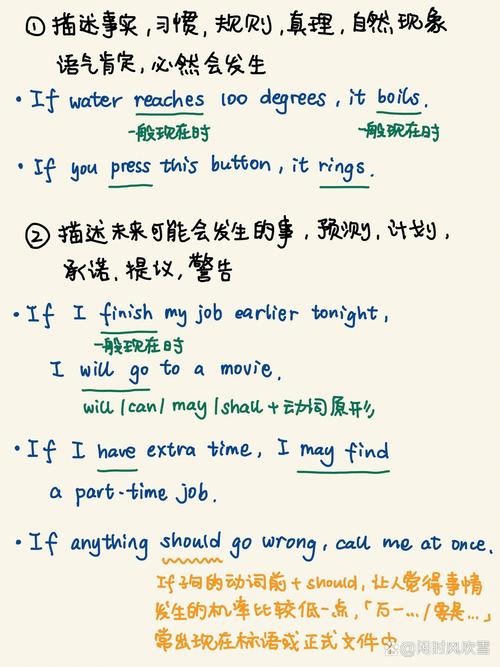 ① 描述事实，习惯，规则，真理，自然现象
语气肯定，必然会发生
· If water reaches 100 degrees, it boils.
一般现在时 一般现在时
· If you press this button, it rings.
② 描述未来可能会发生的事，预测，计划，
承诺，提议，警告
· If I finish my job earlier tonight,
一般现在时
I will go to a movie.
will / can / may / shall + 动词原形
· If I have extra time, I may find
a part-time job.
· If anything should go wrong, call me at once.
If子句的动词前 + should, 让人觉得事情
发生的机率比较低一点，「万一…/要是…」
常出现在标语或正式文件中
@闲时风吹雪